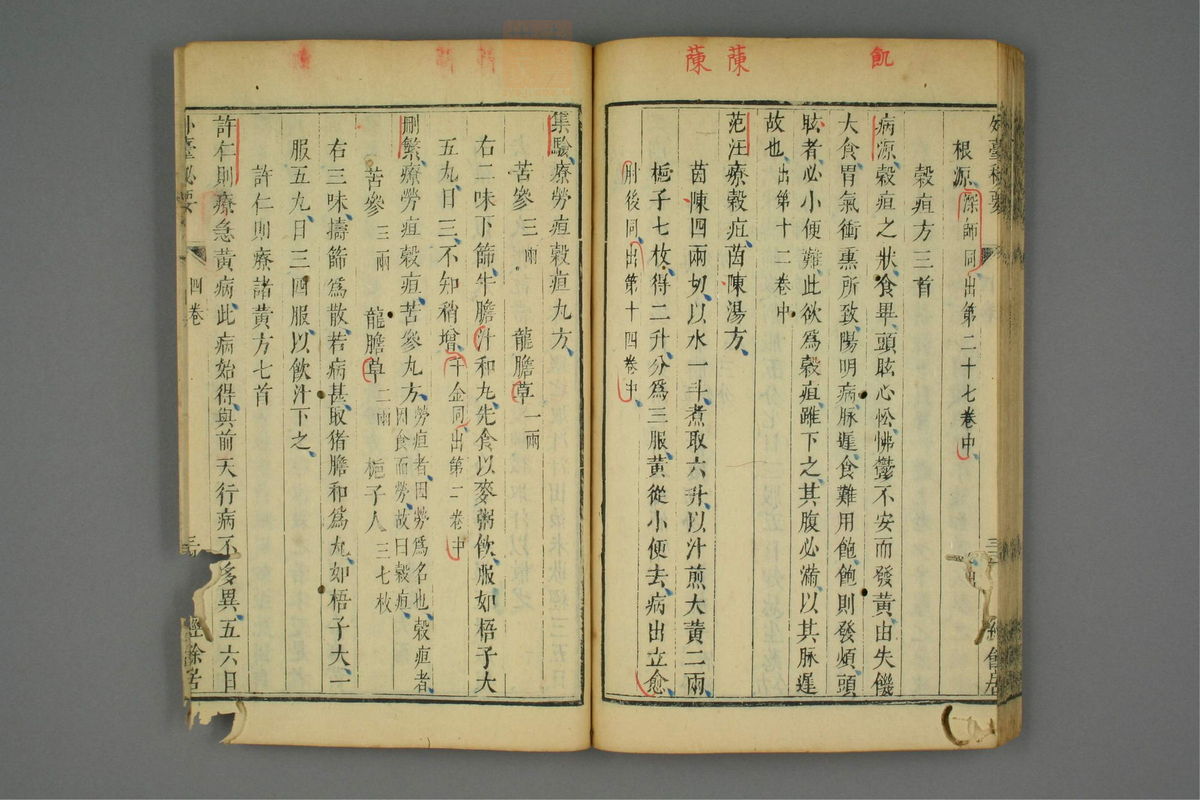 飢
蔯
蔯
根源、深師同出第二十七卷中、
穀疸方三首
病源、穀疸之狀、食畢頭眩、心忪怫鬱不安而發黃、由失饑
大食、胃氣衝熏所致、陽明病、脉遲、食難用飽、飽則發煩、頭
眩者、必小便難、此欲為穀疸、雖下之、其腹必滿、以其脉遲
故也、出第十二卷中
范汪療穀疸、茵陳湯方、
茵陳四兩切、以水一斗、煮取六升、以汁煎大黃二兩、
梔子七枚、得二升、分為三服、黃從小便去、病出立愈、
肘後同、出第十四卷中、
集驗、療勞疸穀疸丸方、
苦參三兩 龍膽草一兩
右二味、下篩、牛膽汁和丸、先食以麥粥飲、服如梧子大
五丸、日三、不知稍增、千金同、出第二卷中
刪繁、療勞疸穀疸、苦參丸方、勞疸者、因勞為名也、穀疸者、
因食而勞、故曰穀疸、
苦參三兩 龍膽草二兩 梔子人三七枚
右三味、擣篩為散、若病甚、取猪膽和為丸、如梧子大、一
服五丸、日三四服、以飲汁下之、
許仁則療諸黃方七首
許仁則療急黃病、此病始得、與前天行病不多異、五六日
四卷
經餘居